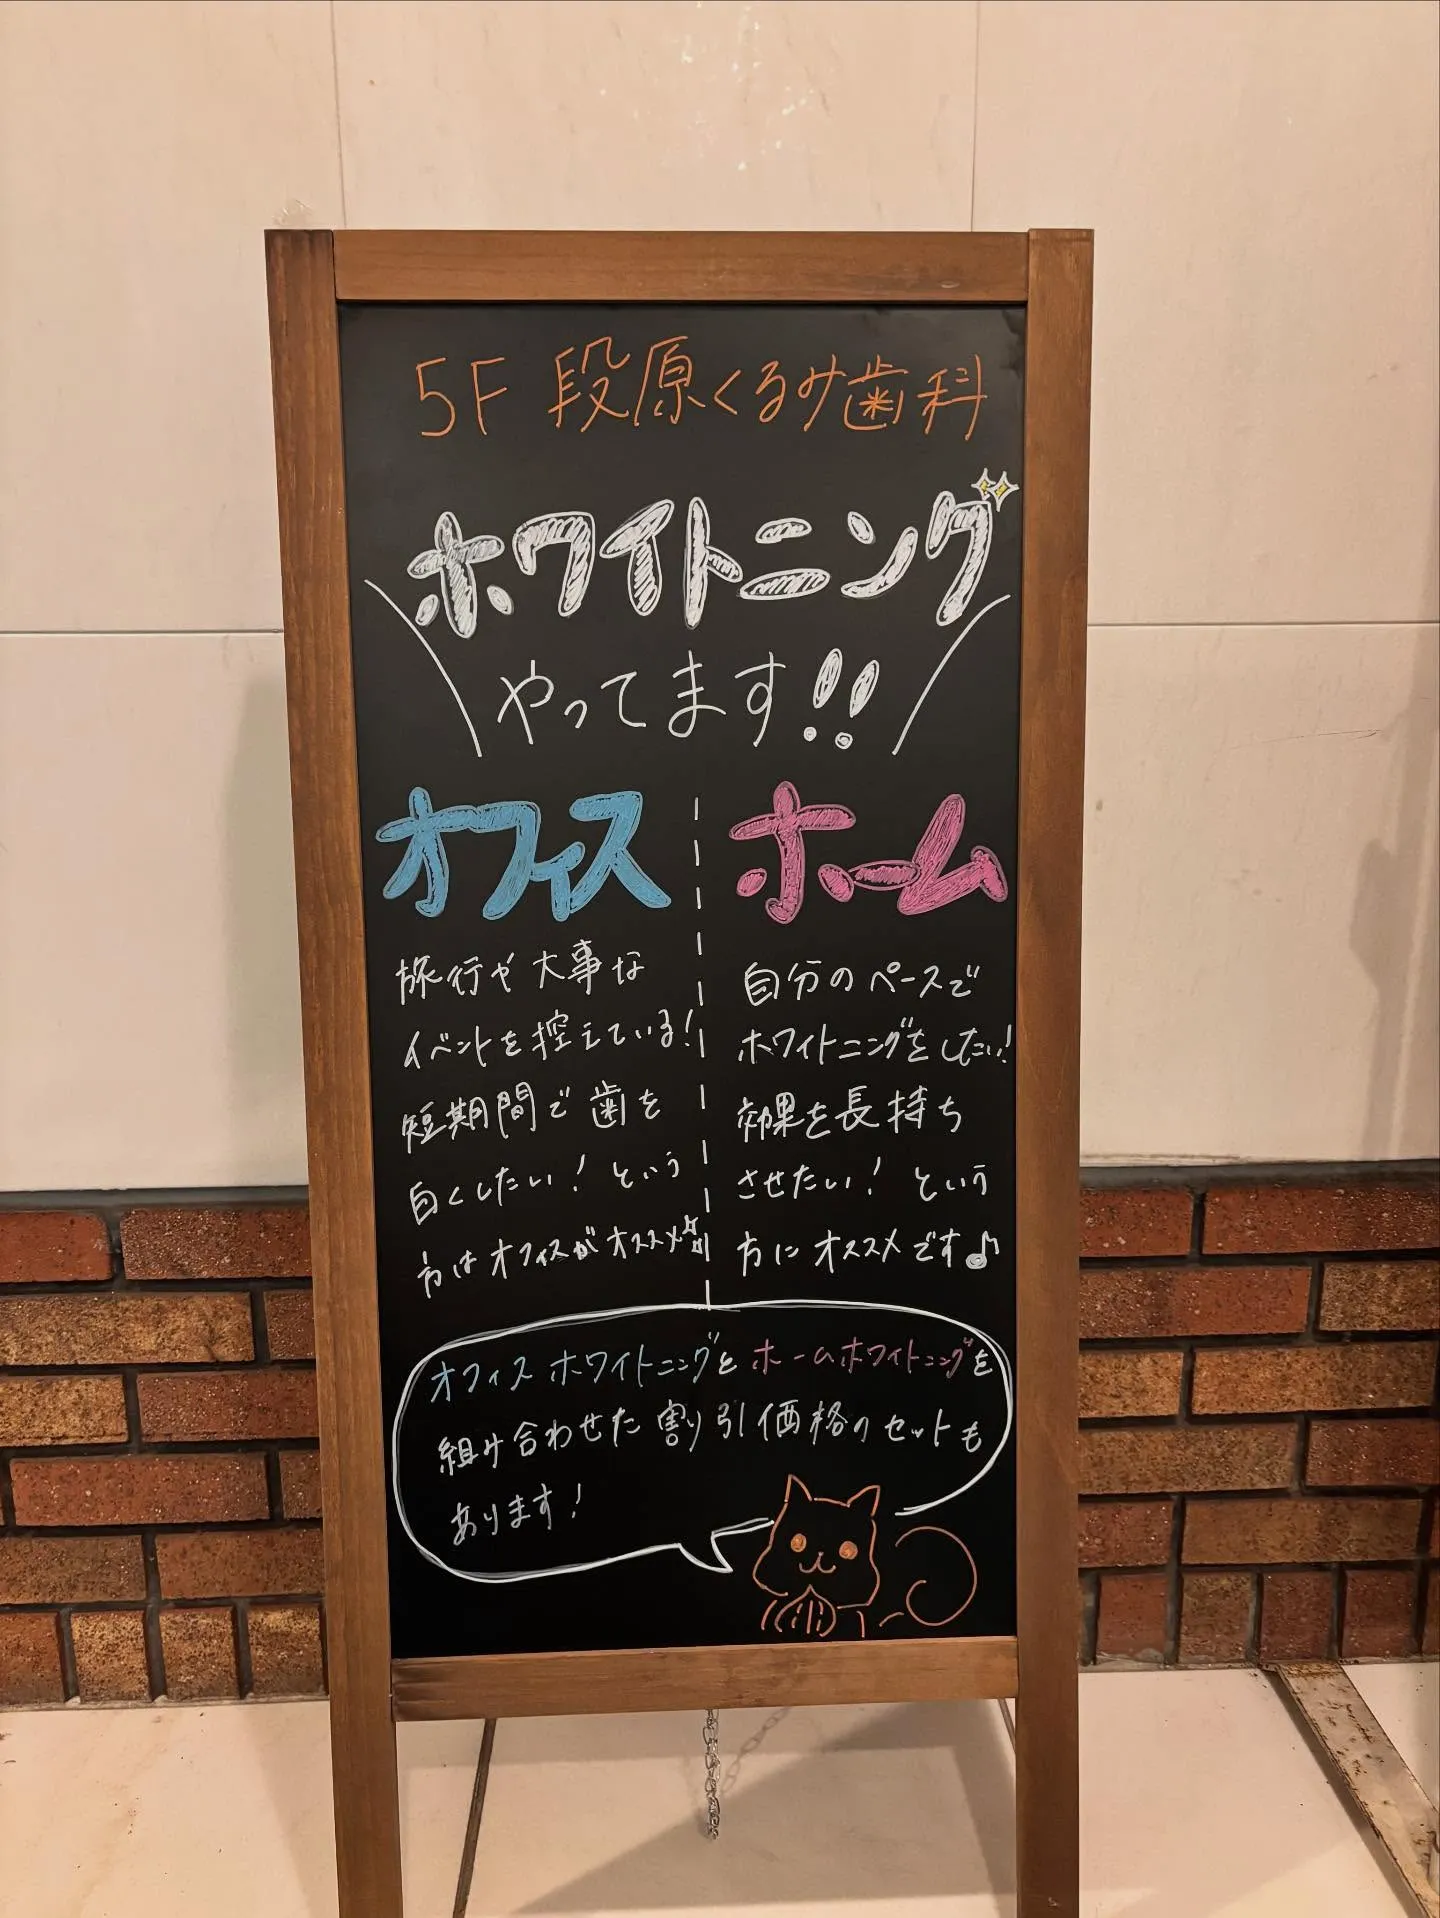 5F 段原くるみ歯科
ホワイトニング
やってます!!
オフィス
旅行や大事な
イベントを控えている!
短期間で歯を
白くしたい! という
方はオフィスがオススメ
ホーム
自分のペースで
ホワイトニングをしたい!
効果を長持ち
させたい! という
方にオススメです♪
オフィスホワイトニングとホームホワイトニングを
組み合わせた割り引価格のセットも
あります!